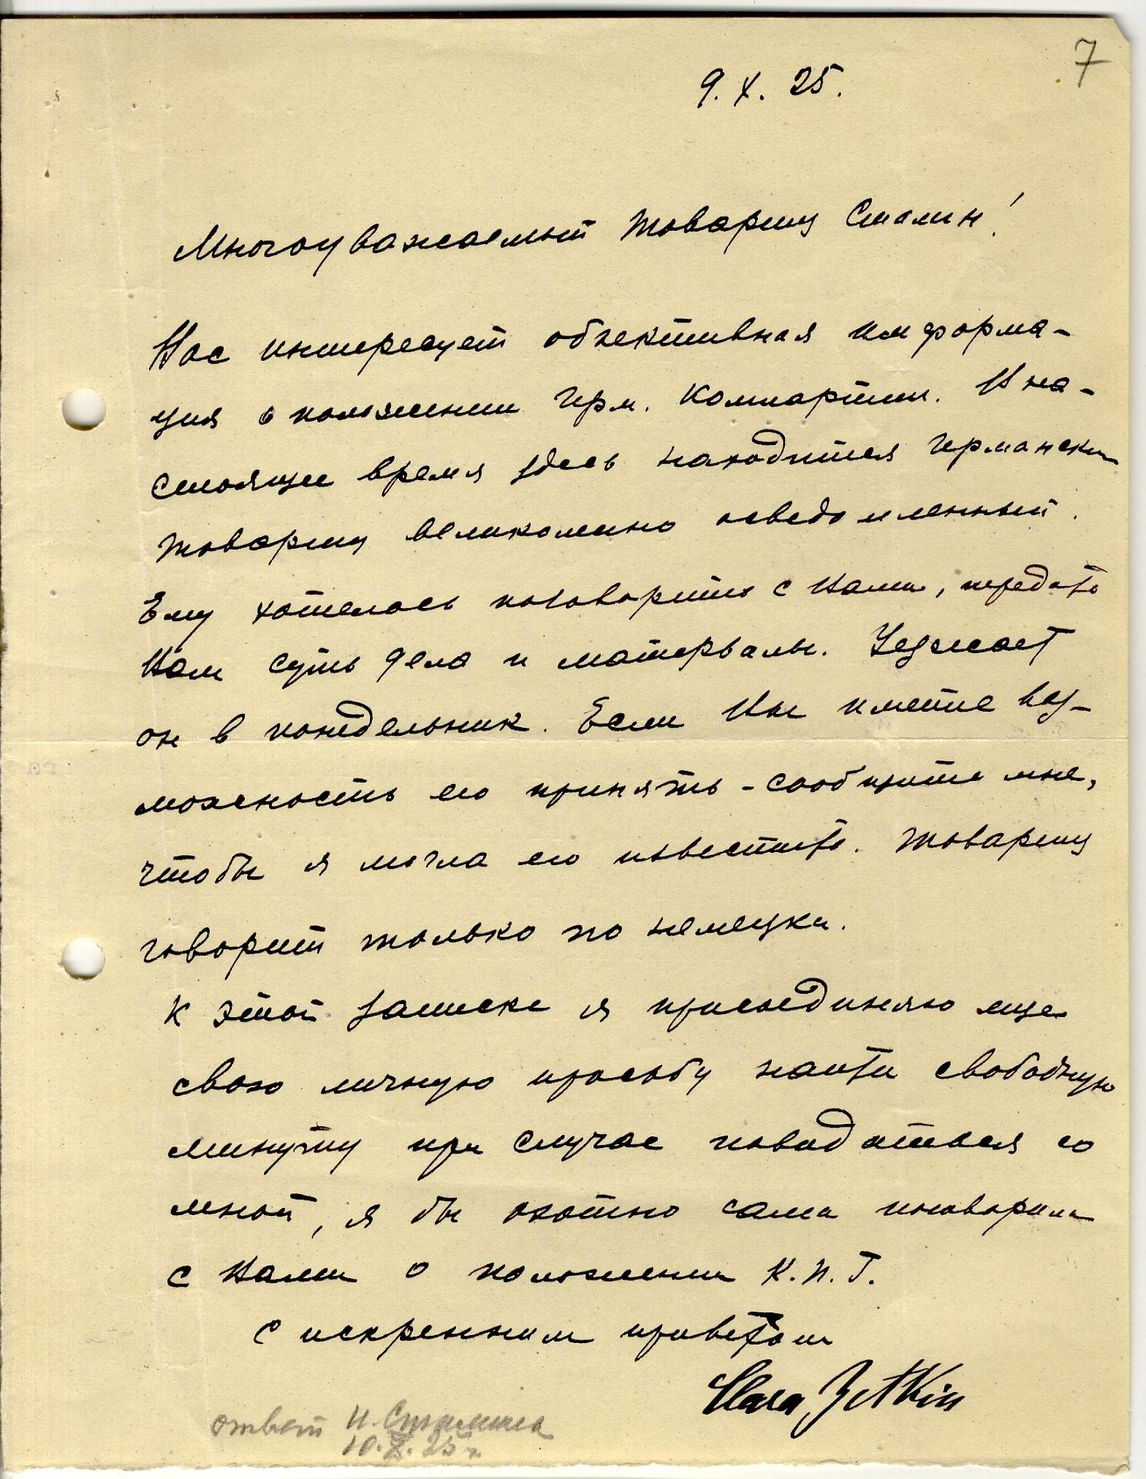 7
9. X. 25.
Многоуважаемый товарищ Сталин!
Вас интересует объективная информа-
ция о положении герм. компартии. В на-
стоящее время здесь находится германский
товарищ великолепно осведомленный.
Ему хотелось поговорить с Вами, передать
Вам суть дела и материалы. Уезжает
он в понедельник. Если Вы имеете воз-
можность его принять - сообщите мне,
чтобы я могла его известить. Товарищ
говорит только по немецки.
К этой записке я присоединяю еще
свою личную просьбу найти свободную
минуту при случае повидаться со
мной, я бы охотно сама поговорила
с Вами о положении К.П.Г.
С искренним приветом
Clara Zetkin
ответ И. Сталина
10.X.25 г.